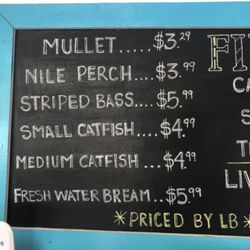 MULLET.....$3.29
NILE PERCH....$3.99
STRIPED BASS....$5.99
SMALL CATFISH....$4.99
MEDIUM CATFISH....$4.99
FRESH WATER BREAM..$5.99
*PRICED BY LB.*